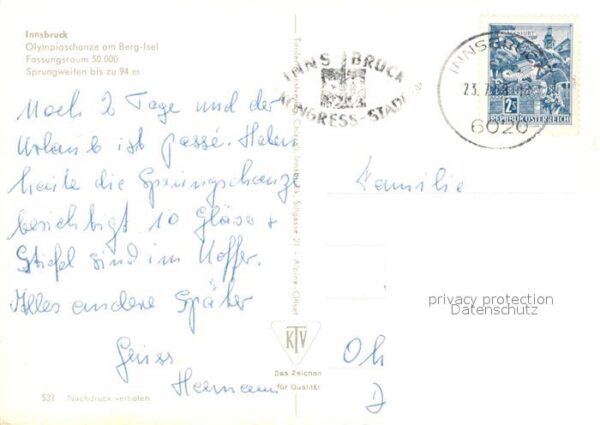 Innsbruck
Olympiaschanze am Berg-Isel
Fassungsraum 50.000
Sprungweiten bis zu 94 m
Noch 2 Tage und der
Urlaub ist passé. Haben
heute die Sprungschanze
besichtigt 10 Gläser +
Stiefel sind im Koffer.
Alles andere Später
Gruss
Hermann
531 Nachdruck verboten
Innsbruck, Seilgasse 21
KTV
Das Zeichen
für Qualität
INNSBRUCK
KONGRESS-STADT
INNSBRUCK
23. 7.68
6020
2S
REPUBLIK ÖSTERREICH
Familie
privacy protection
Datenschutz